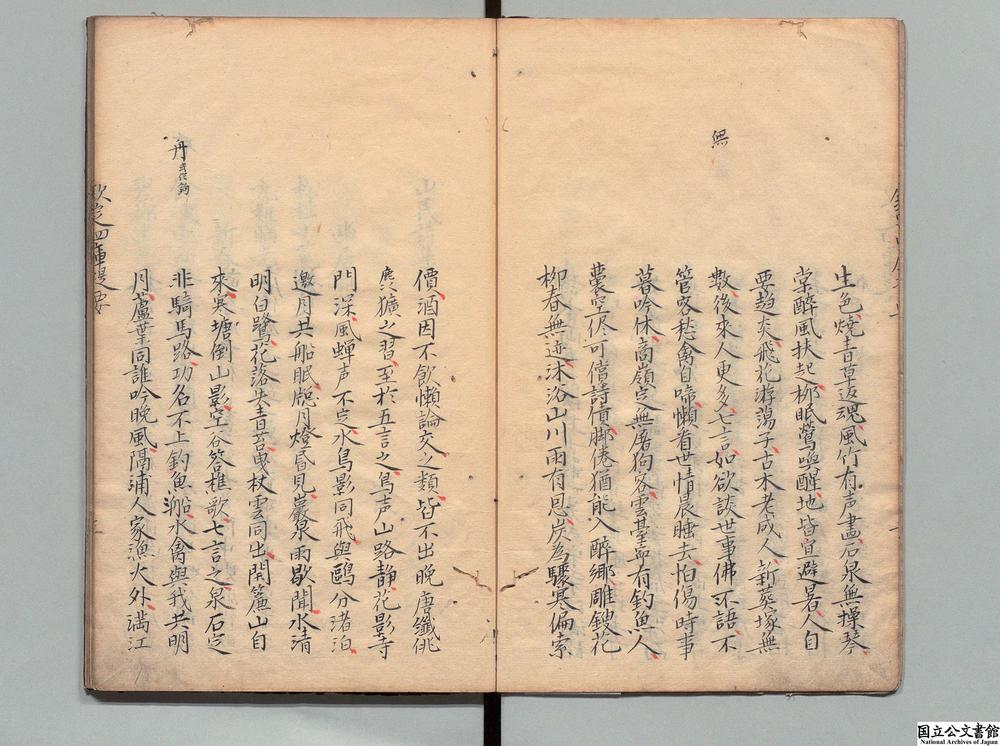 無
生色燒青草返魂風竹有声畫石泉無操琴
棠醉風扶起柳眠鶯喚醒地皆宜避暑人自
要趨炎飛花游蕩子古木老成人新葬塚無
數後來人更多七言如欲談世事佛不語不
管客愁禽自啼懶看世情晨睡去怕傷時事
暮吟休高嶺定無屠狗客雲臺亦有釣魚人
囊空侭可償詩債脚倦猶能入醉郷雕鎪花
柳春無迹沐浴山川雨有恩炭為驟寒偏索
價酒因不飲懶論交之類皆不出晚唐纖佻
麄獷之習至於五言之鳥声山路静花影寺
門深風蟬声不定水鳥影同飛與鷗分渚泊
邀月共船眠牕月燈昏見巖泉雨歇聞水清
明白鷺花落失青苔曳杖雲同出開簾山自
來寒塘倒山影空谷答樵歌七言之泉石定
非騎馬路功名不上釣魚船水禽與我共明
月蘆葉同誰吟晚風隔浦人家漁火外満江
丹
欽定四庫提要
国立公文書館
National Archives of Japan